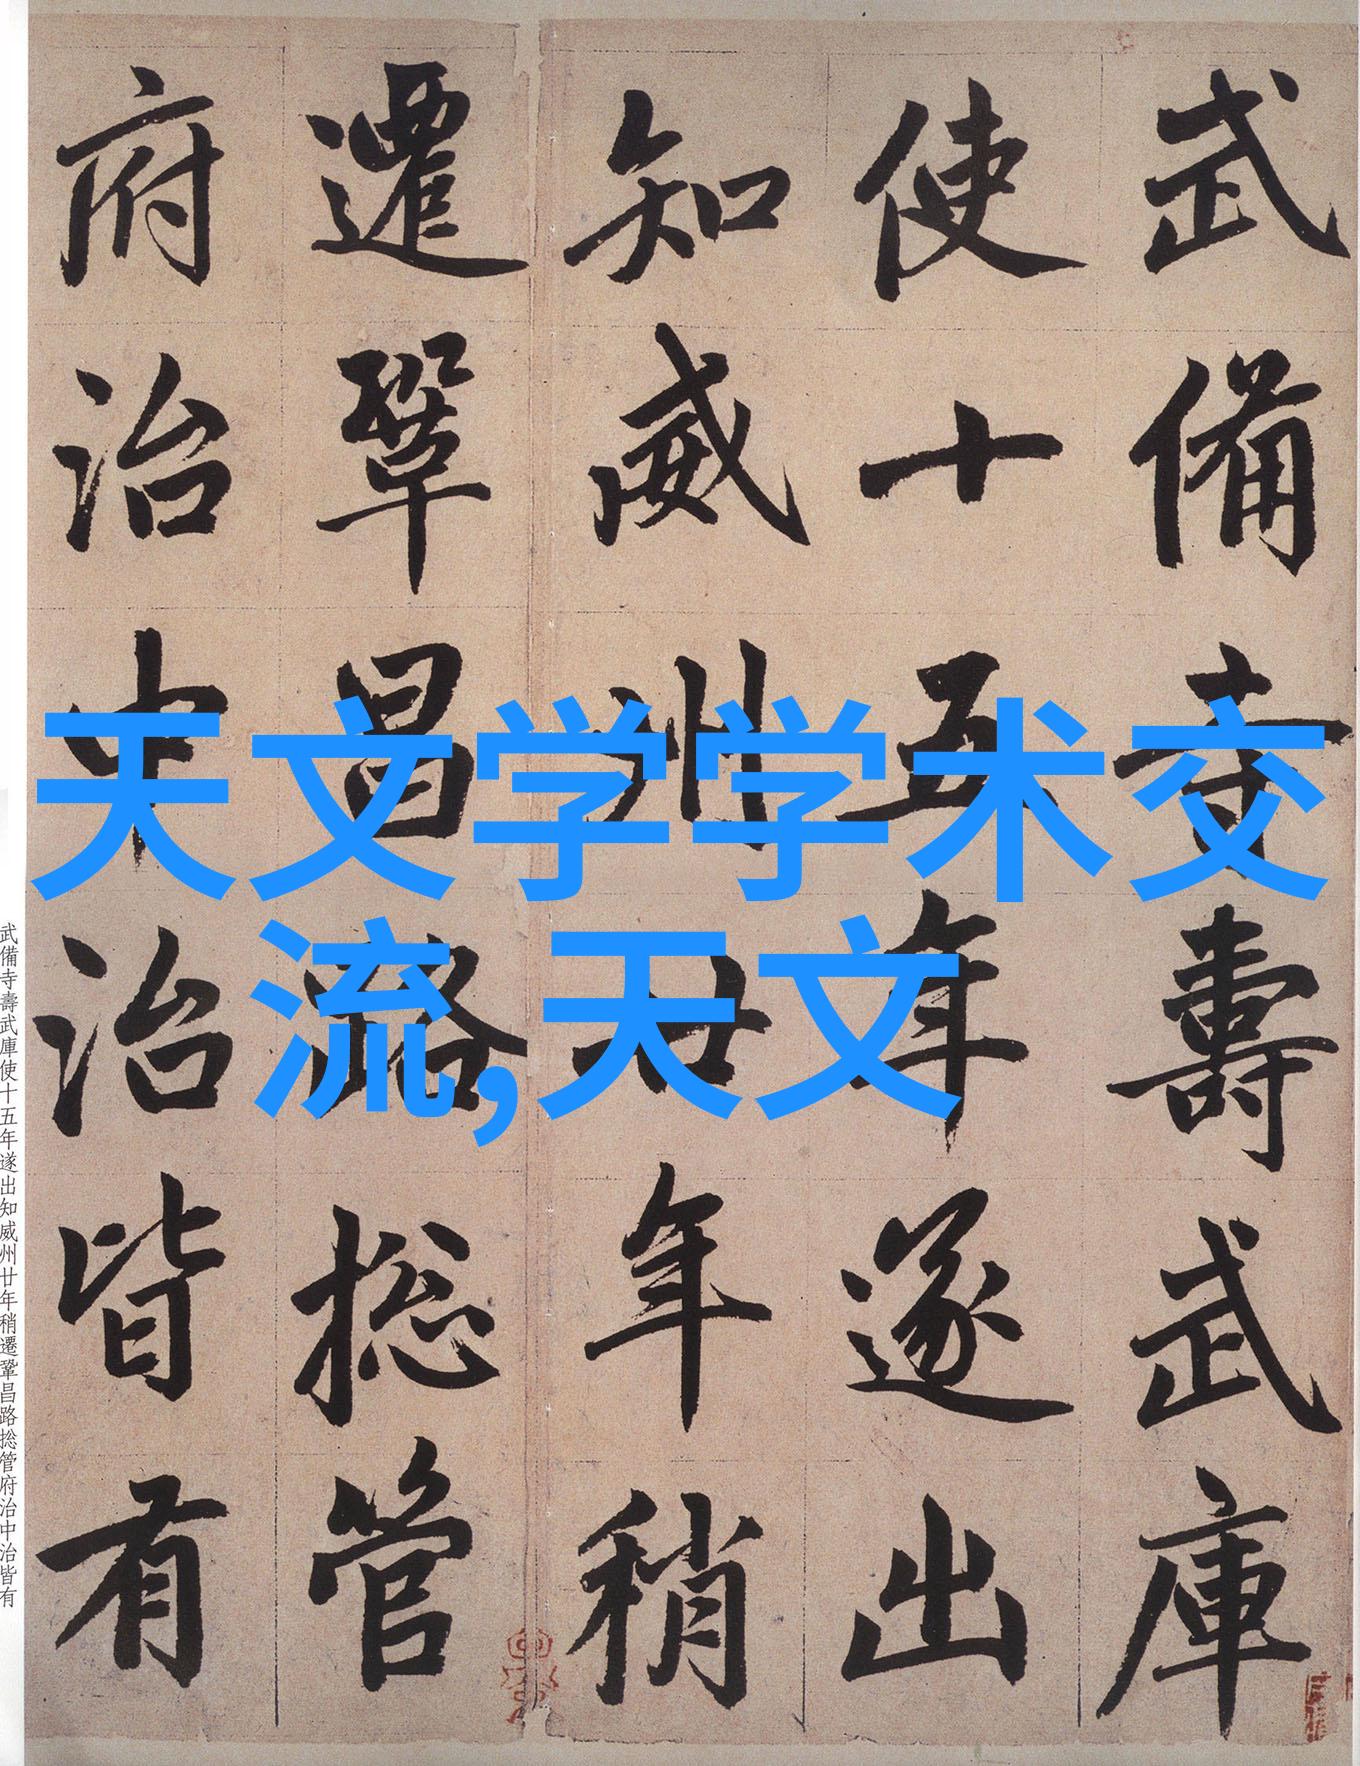 武備寺壽武庫
使十五年遂出
知威州廿年稍
遷鞏昌路捴管
府治中治皆有
天文学学术交
流,天文
武備寺壽武庫使十五年遂出知威州廿年稍遷鞏昌路捴管府治中治皆有